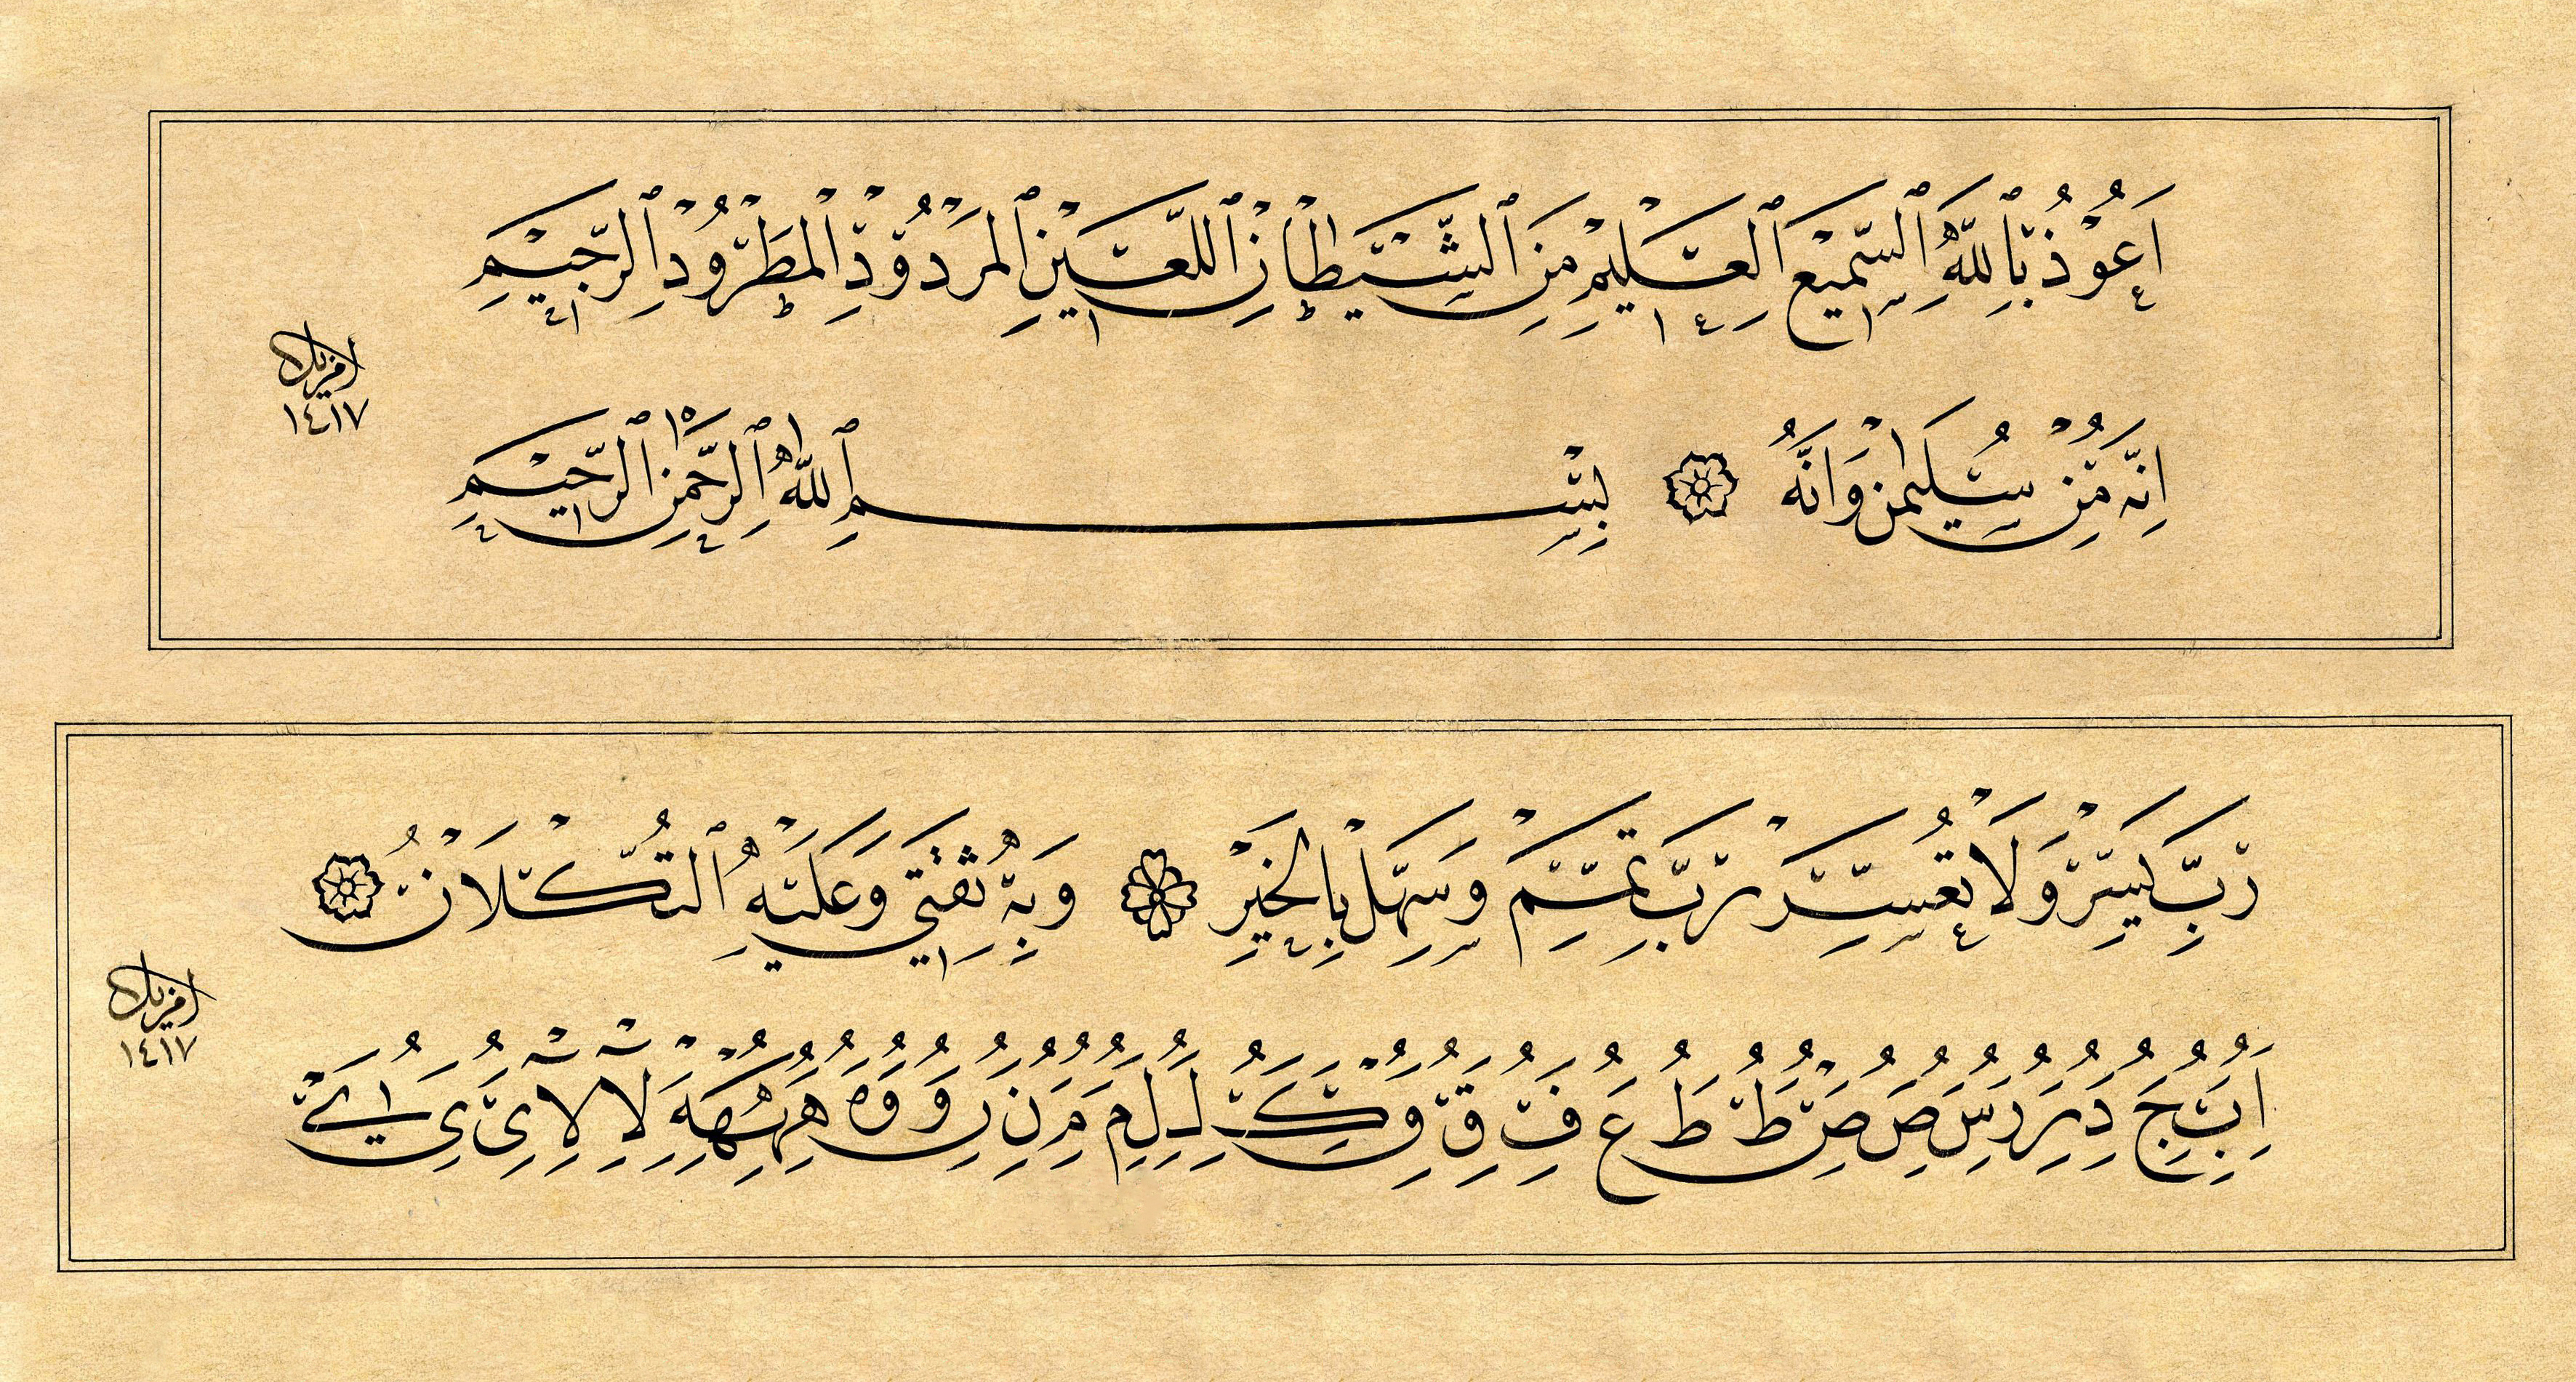 اَعُوْذُ بِاللّٰهِ السَّمِيْعِ الْعَلِيْمِ مِنَ الشَّيْطَانِ اللَّعِيْنِ الْمَرْدُوْدِ الْمَطْرُوْدِ الرَّجِيْمِ
اِنَّهُ مِنْ سُلَيْمٰنَ وَاِنَّهُ بِسْمِ اللّٰهِ الرَّحْمٰنِ الرَّحِيْمِ
١٤١٧
رَبِّ يَسِّرْ وَلَا تُعَسِّرْ رَبِّ تَمِّمْ وَسَهِّلْ بِالْخَيْرِ وَبِهِ ثِقَتِي وَعَلَيْهِ التُّكْلَانُ
ا ب ج د ر ر س ص ص ط ط ع ف ق و ك ل ل م م ن
١٤١٧